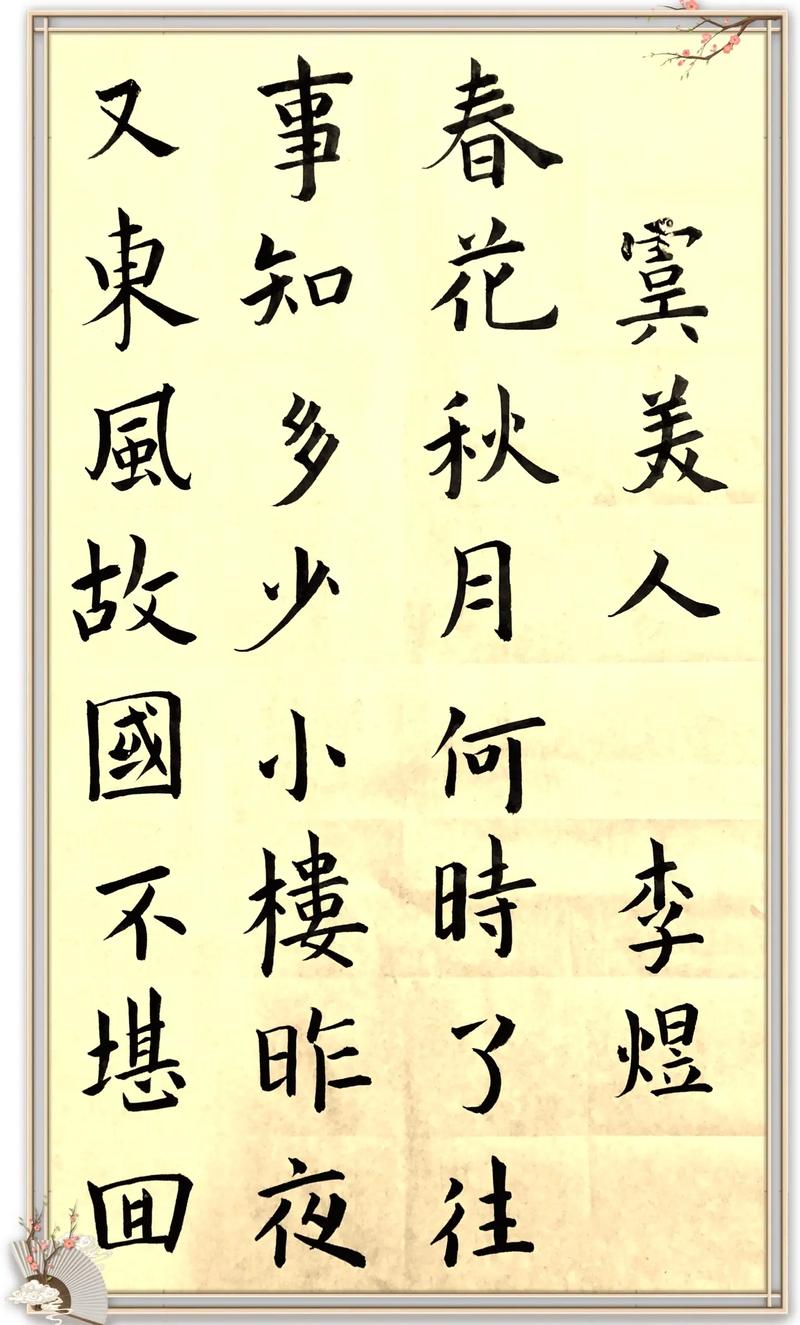 虞美人 李煜
春花秋月何時了往
事知多少小樓昨夜
又東風故國不堪回